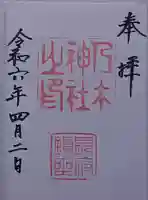 奉拝
乃木
神社
之印
令和六年四月二日